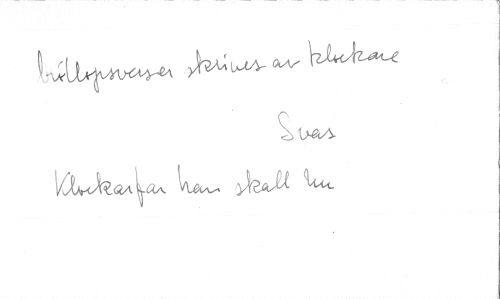 bröllopsverser skrives av klockare
Svar
Klockarfar han skall